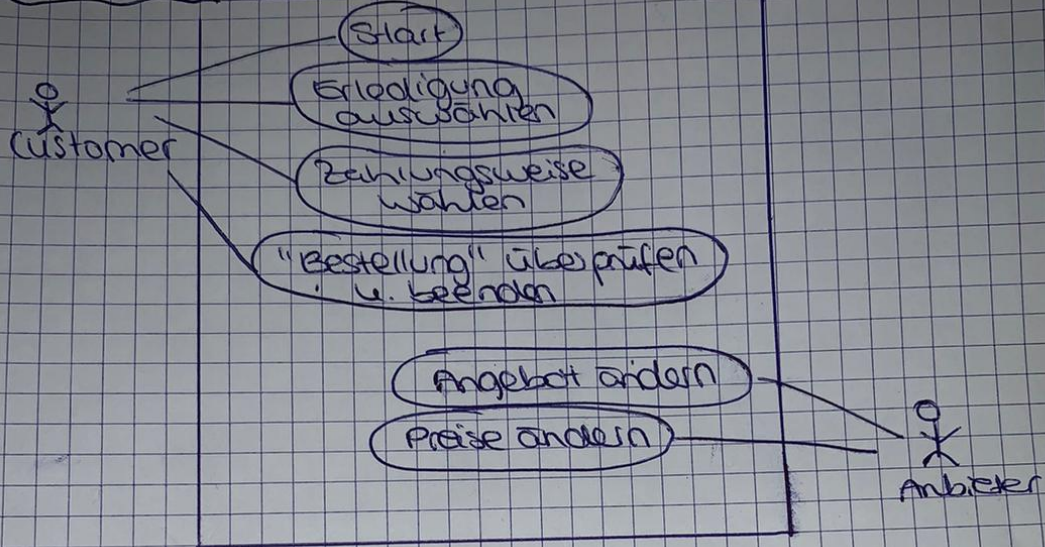 Start
Erledigung
auswählen
Customer
Zahlungsweise
wählen
"Bestellung" überprüfen
u. beenden
Angebot ändern
Preise ändern
Anbieter